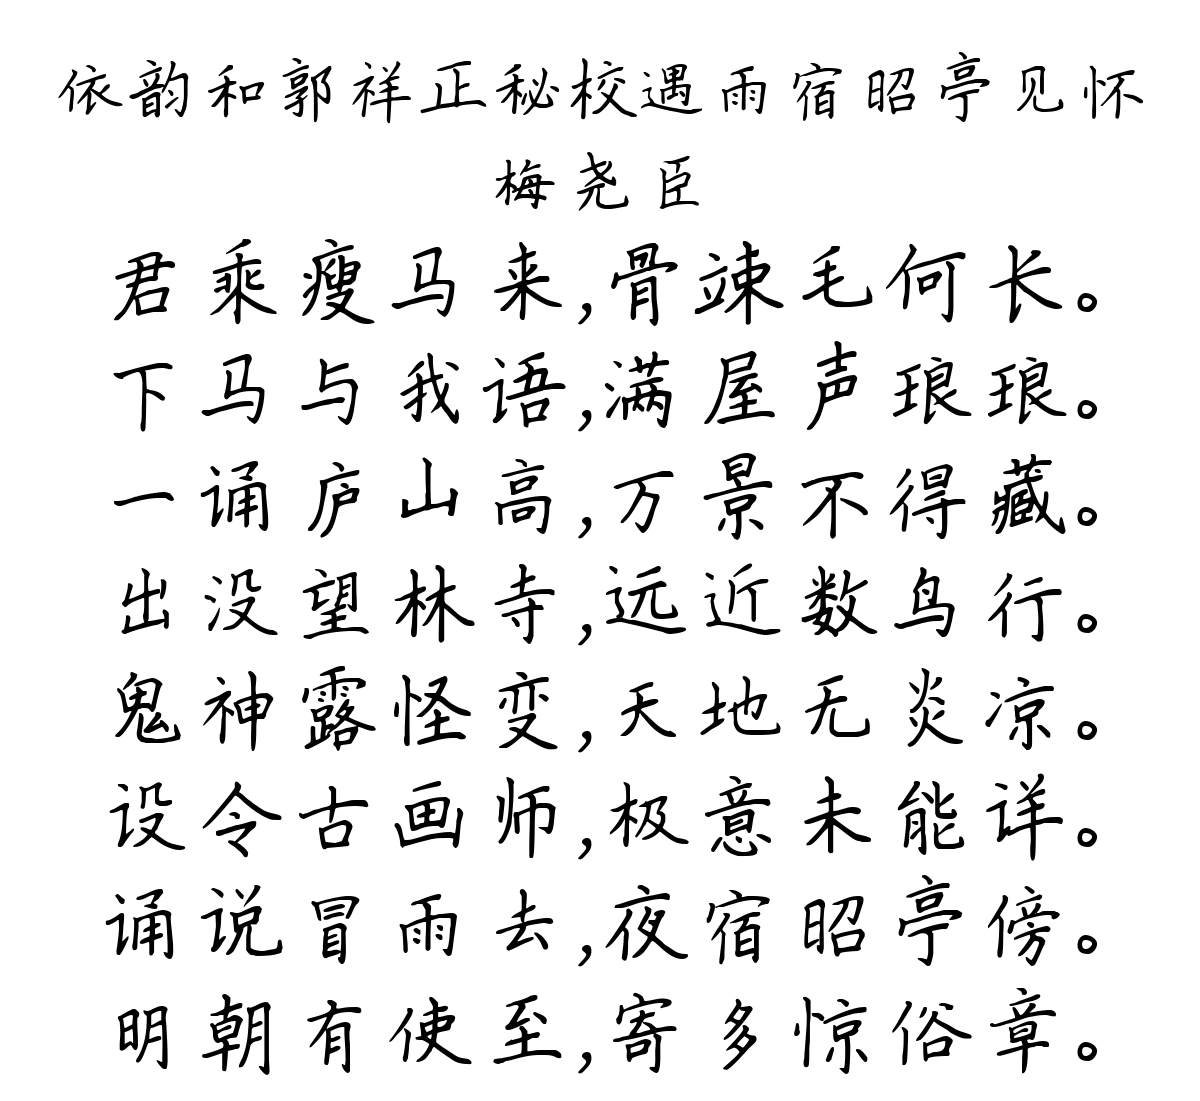 依韵和郭祥正秘校遇雨宿昭亭见怀
梅尧臣
君乘瘦马来,骨竦毛何长。
下马与我语,满屋声琅琅。
一诵庐山高,万景不得藏。
出没望林寺,远近数鸟行。
鬼神露怪变,天地无炎凉。
设令古画师,极意未能详。
诵说冒雨去,夜宿昭亭傍。
明朝有使至,寄多惊俗章。